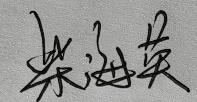 柴海英